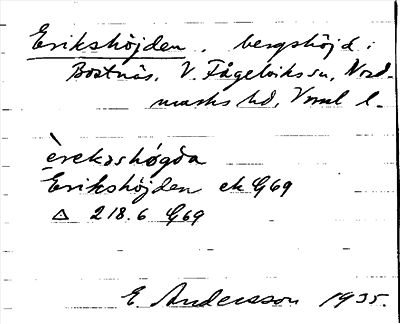 Erikshöjden, bergshöjd i
Bostnäs, V. Fågelviks sn, Nord-
marks hd, Vrml l.
èrekashǿgda
Erikshöjden ek G69
△ 218.6 G69
E. Andersson 1935.